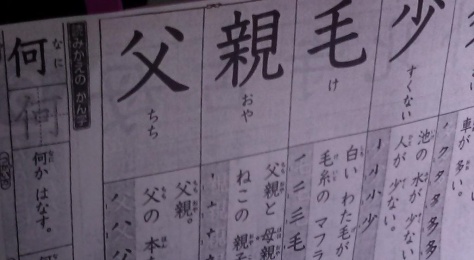 少
すくない
車が 多い。
池の 水が 少ない
人が 少ない。
毛
け
白い わた毛が
毛糸の マフラ
親
おや
父親と 母親
ねこの 親子
父
ちち
父親。
父の 本
読みかえの かん字
何
なに
何
何か はなす。